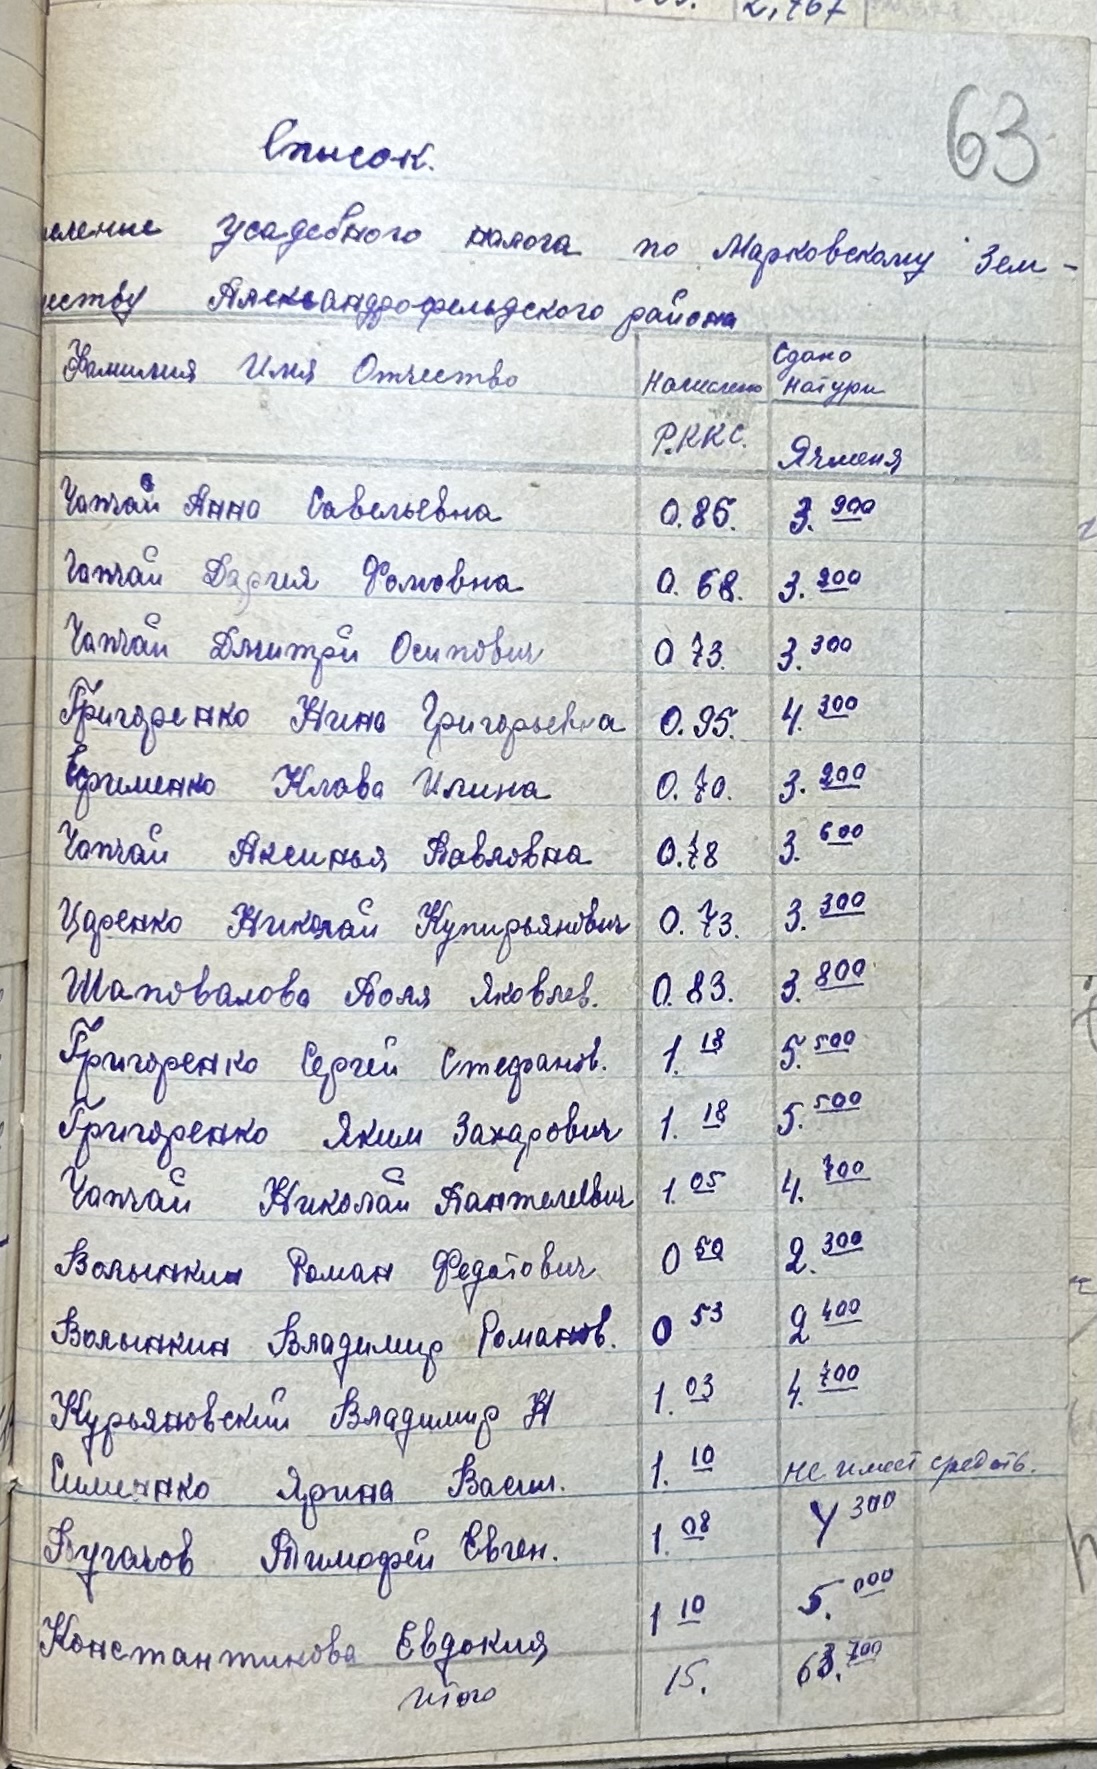 2,767
63
Список.
ление усадебного налога по Марковскому Зем-
еству Александрофельдского района
Фамилия Имя Отчество Начислено Сдано Натури
Р.ККС. Ячменя
Чапчай Анна Савельевна 0.85. 3.900
Чапчай Дария Фомовна 0.68. 3.200
Чапчай Дмитрй Осипович 0.73. 3.300
Григоренко Нина Григорьевна 0.95. 4.300
Ефименко Клава Илина 0.70. 3.200
Чапчай Аксинья Павловна 0.78 3.600
Царенко Николай Куприрьянович 0.73. 3.300
Шаповалова Поля Яковлев. 0.83. 3.800
Григоренко Сергей Стефанов. 1.18 5.500
Григоренко Яким Захарович 1.18 5.500
Чапчай Николай Пантелеевич 1.05 4.700
Волынкин Роман Федотович 0 50 2.300
Волынкин Владимир Романов. 0 53 2 400
Курьяновский Владимир Н 1.03 4.700
Симинко Ярина Васил. 1.10 не имеет средств.
Пугачов Тимофей Евген. 1.08 4 300
Константинова Евдокия 1 10 5.000
Итого 15. 63.700